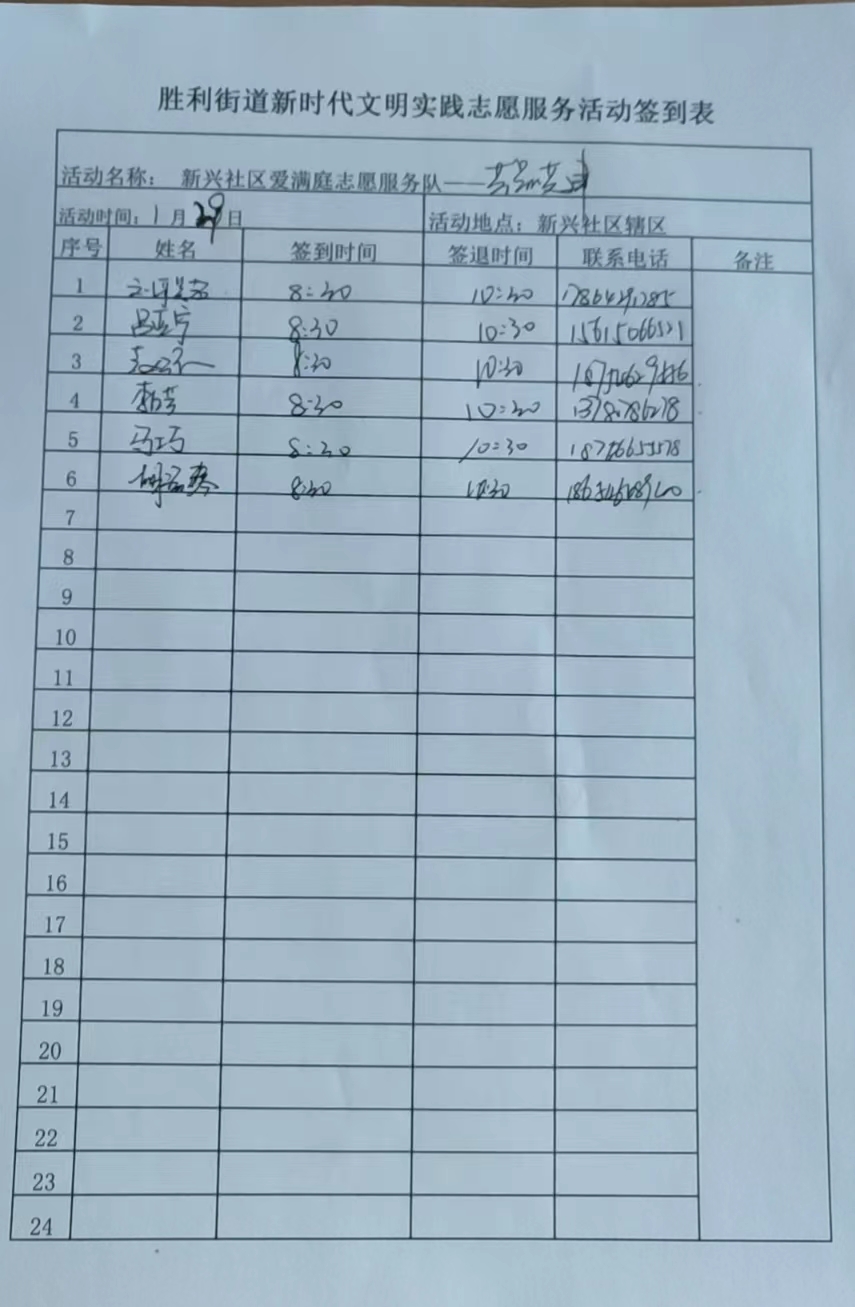 胜利街道新时代文明实践志愿服务活动签到表
活动名称： 新兴社区爱满庭志愿服务队——
活动时间：1月29日 活动地点：新兴社区辖区
序号 姓名 签到时间 签退时间 联系电话 备注
1 8:30 10:30
2 吕亚宁 8:30 10:30 15615066521
3 8:30 10:30
4 8:30 10:30
5 马巧 8:30 10:30
6 8:30 10:30
7
8
9
10
11
12
13
14
15
16
17
18
19
20
21
22
23
24